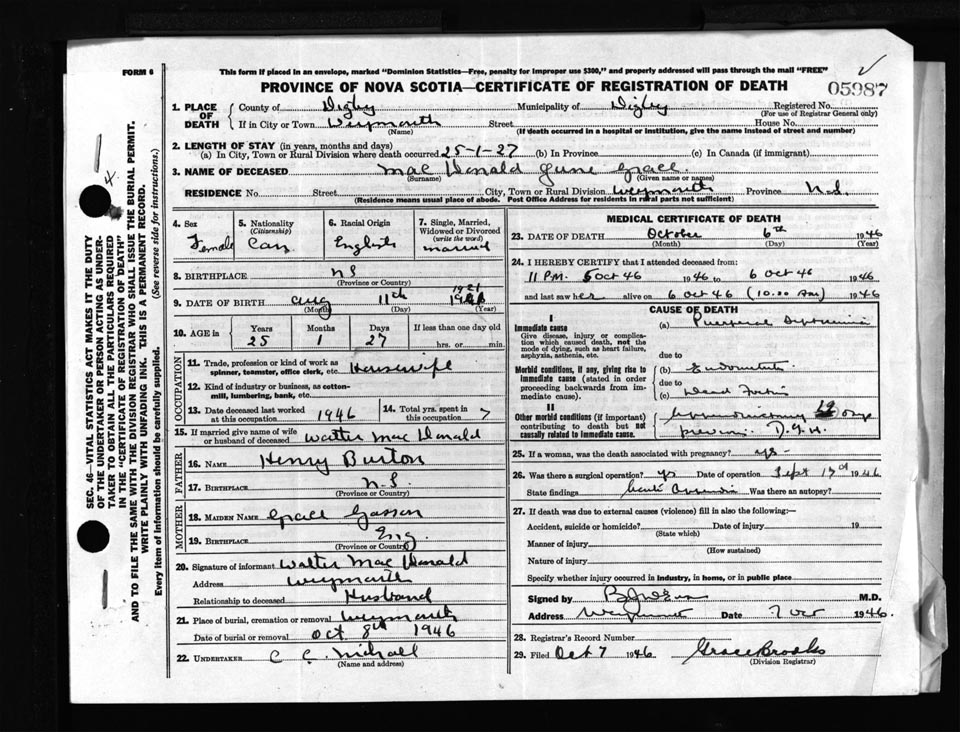 FORM 6
This form if placed in an envelope, marked "Dominion Statistics—Free, penalty for improper use $300," and properly addressed will pass through the mail "FREE"
PROVINCE OF NOVA SCOTIA—CERTIFICATE OF REGISTRATION OF DEATH
05987
1. PLACE OF DEATH County of Digby Municipality of Digby Registered No.
(For use of Registrar General only)
If in City or Town Weymouth Street House No.
(Name) (If death occurred in a hospital or institution, give the name instead of street and number)
2. LENGTH OF STAY (in years, months and days)
(a) In City, Town or Rural Division where death occurred 25-1-27 (b) In Province (c) In Canada (if immigrant)
3. NAME OF DECEASED Mac Donald June Grace
(Surname) (Given name or names)
RESIDENCE No. Street City, Town or Rural Division Weymouth Province N.S.
(Residence means usual place of abode. Post Office Address for residents in rural parts not sufficient)
4. Sex
Female
5. Nationality
(Citizenship)
Can
6. Racial Origin
English
7. Single, Married, Widowed or Divorced
(write the word)
married
8. BIRTHPLACE NS
(Province or Country)
9. DATE OF BIRTH Aug 11th 1921
(Month) (Day) (Year)
10. AGE in Years Months Days If less than one day old
25 1 27 hrs. or min.
OCCUPATION
11. Trade, profession or kind of work as spinner, teamster, office clerk, etc. Housewife
12. Kind of industry or business, as cotton-mill, lumbering, bank, etc.
13. Date deceased last worked at this occupation 1946
14. Total yrs. spent in this occupation 7
15. If married give name of wife or husband of deceased Walter Mac Donald
FATHER
16. NAME Henry Burton
17. BIRTHPLACE N.S.
(Province or Country)
MOTHER
18. MAIDEN NAME Grace
19. BIRTHPLACE Eng.
(Province or Country)
20. Signature of informant Walter Mac Donald
Address Weymouth
Relationship to deceased Husband
21. Place of burial, cremation or removal Weymouth
Date of burial or removal Oct. 8th 1946
22. UNDERTAKER C. C.
(Name and address)
MEDICAL CERTIFICATE OF DEATH
23. DATE OF DEATH October 6th 1946
(Month) (Day) (Year)
24. I HEREBY CERTIFY that I attended deceased from:
11 P.M. 5 Oct 46 1946 to 6 Oct 46 1946
and last saw her alive on 6 Oct 46 (10.30 AM) 1946
CAUSE OF DEATH
I
Immediate cause
Give disease, injury or complication which caused death, not the mode of dying, such as heart failure, asphyxia, asthenia, etc.
(a) Puerperal Septicaemia
due to
Morbid conditions, if any, giving rise to immediate cause (stated in order proceeding backwards from immediate cause).
(b) Endometritis
due to
(c) Dead
II
Other morbid conditions (if important) contributing to death but not causally related to immediate cause.
Appendectomy 19 days
D.G.H.
25. If a woman, was the death associated with pregnancy? yes
26. Was there a surgical operation? yes Date of operation Sept 17 1946
State findings Was there an autopsy?
27. If death was due to external causes (violence) fill in also the following:—
Accident, suicide or homicide? Date of injury 19
(State which)
Manner of injury
(How sustained)
Nature of injury
Specify whether injury occurred in industry, in home, or in public place
Signed by M.D.
Address Weymouth Date 7 Oct 1946.
28. Registrar's Record Number
29. Filed Oct 7 1946 Grace Brooks
(Division Registrar)
SEC. 46—VITAL STATISTICS ACT MAKES IT THE DUTY
OF THE UNDERTAKER OR PERSON ACTING AS UNDER-
TAKER TO OBTAIN ALL THE PARTICULARS REQUIRED
IN THE "CERTIFICATE OF REGISTRATION OF DEATH"
AND TO FILE THE SAME WITH THE DIVISION REGISTRAR WHO SHALL ISSUE THE BURIAL PERMIT.
WRITE PLAINLY WITH UNFADING INK. THIS IS A PERMANENT RECORD.
Every item of information should be carefully supplied. (See reverse side for instructions.)